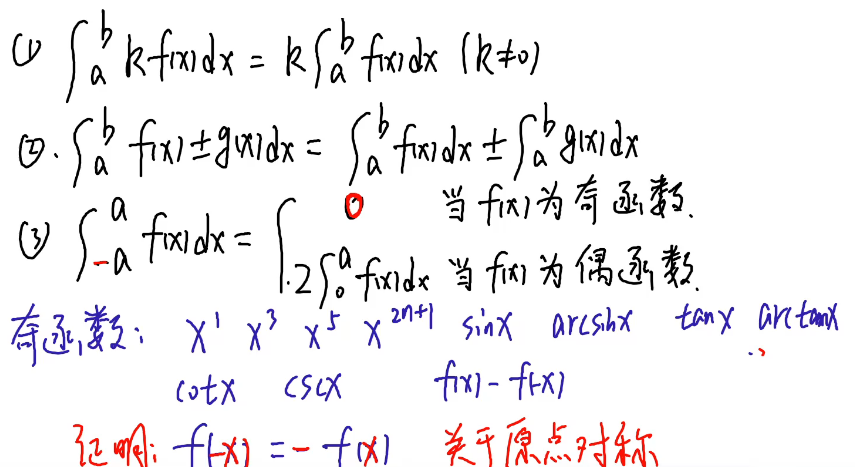 ① ∫_a^b kf(x)dx = k∫_a^b f(x)dx (k≠0)
②. ∫_a^b f(x)±g(x)dx = ∫_a^b f(x)dx ± ∫_a^b g(x)dx
③ ∫_{-a}^a f(x)dx = { 0 当 f(x) 为奇函数.
2∫_0^a f(x)dx 当 f(x) 为偶函数.
奇函数: x^1 x^3 x^5 x^{2n+1} sinx arcsinx tanx arctanx
cotx cscx f(x)-f(-x)
证明: f(-x) = - f(x) 关于原点对称